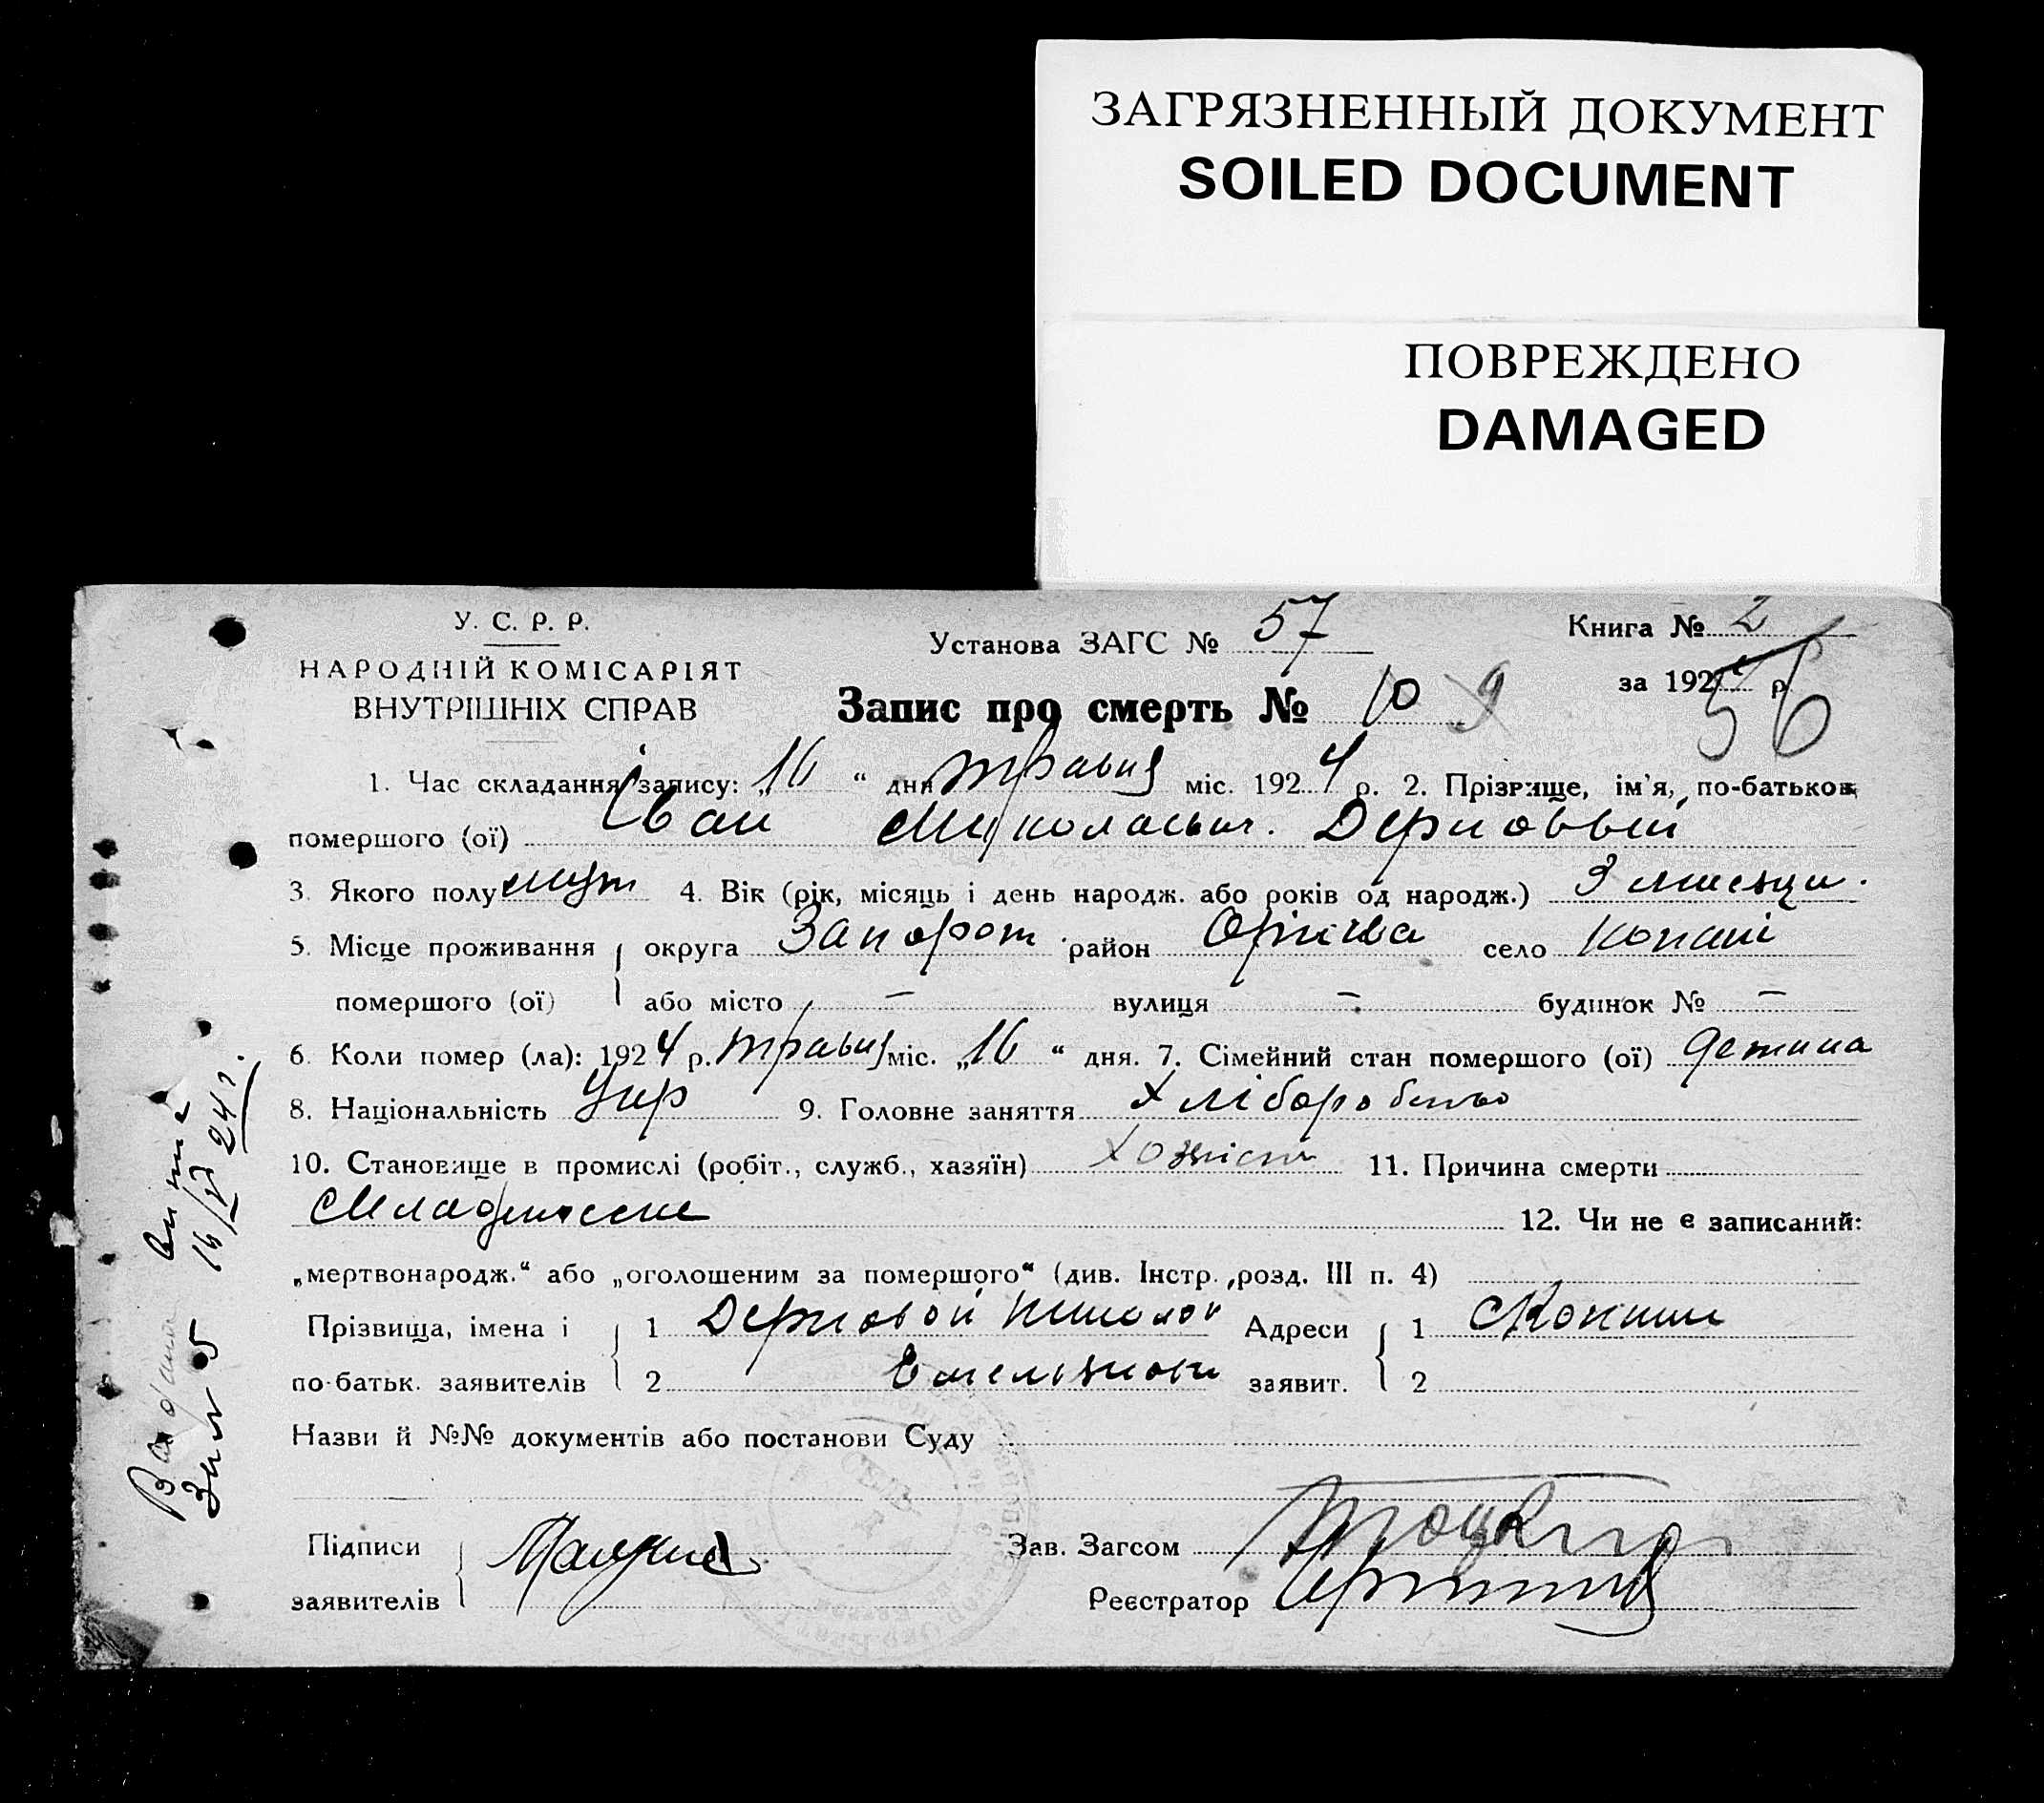 ЗАГРЯЗНЕННЫЙ ДОКУМЕНТ
SOILED DOCUMENT
ПОВРЕЖДЕНО
DAMAGED
У. С. Р. Р.
НАРОДНІЙ КОМІСАРІЯТ
ВНУТРІШНІХ СПРАВ
Установа ЗАГС № 57
Книга № 2
за 1924 р.
56
Запис про смерть № 10 9
1. Час складання запису: „16“ дня травня міс. 1924 р. 2. Прізвище, ім'я, по-батькові
помершого (ої) Іван Миколаєвич. Дерновый
3. Якого полу муж 4. Вік (рік, місяць і день народж. або років од народж.) 3 мисяци.
5. Місце проживання округа Запорож. район Оріхива село Копані
помершого (ої) або місто — вулиця — будинок № —
6. Коли помер (ла): 1924 р. травня міс. „16“ дня. 7. Сімейний стан помершого (ої) детина
8. Національність Укр 9. Головне заняття Хліборобство
10. Становище в промислі (робіт., служб., хазяїн) 11. Причина смерти
12. Чи не є записаний:
„мертвонародж.“ або „оголошеним за помершого“ (див. Інстр. розд. III п. 4)
Прізвища, імена і 1 Дерновой Николай Адреси 1 С Копани
по-батьк. заявителів 2 Емельянови заявит. 2
Назви й №№ документів або постанови Суду
Підписи
Зав. Загсом
заявителів
Реєстратор
16/V 24 г.